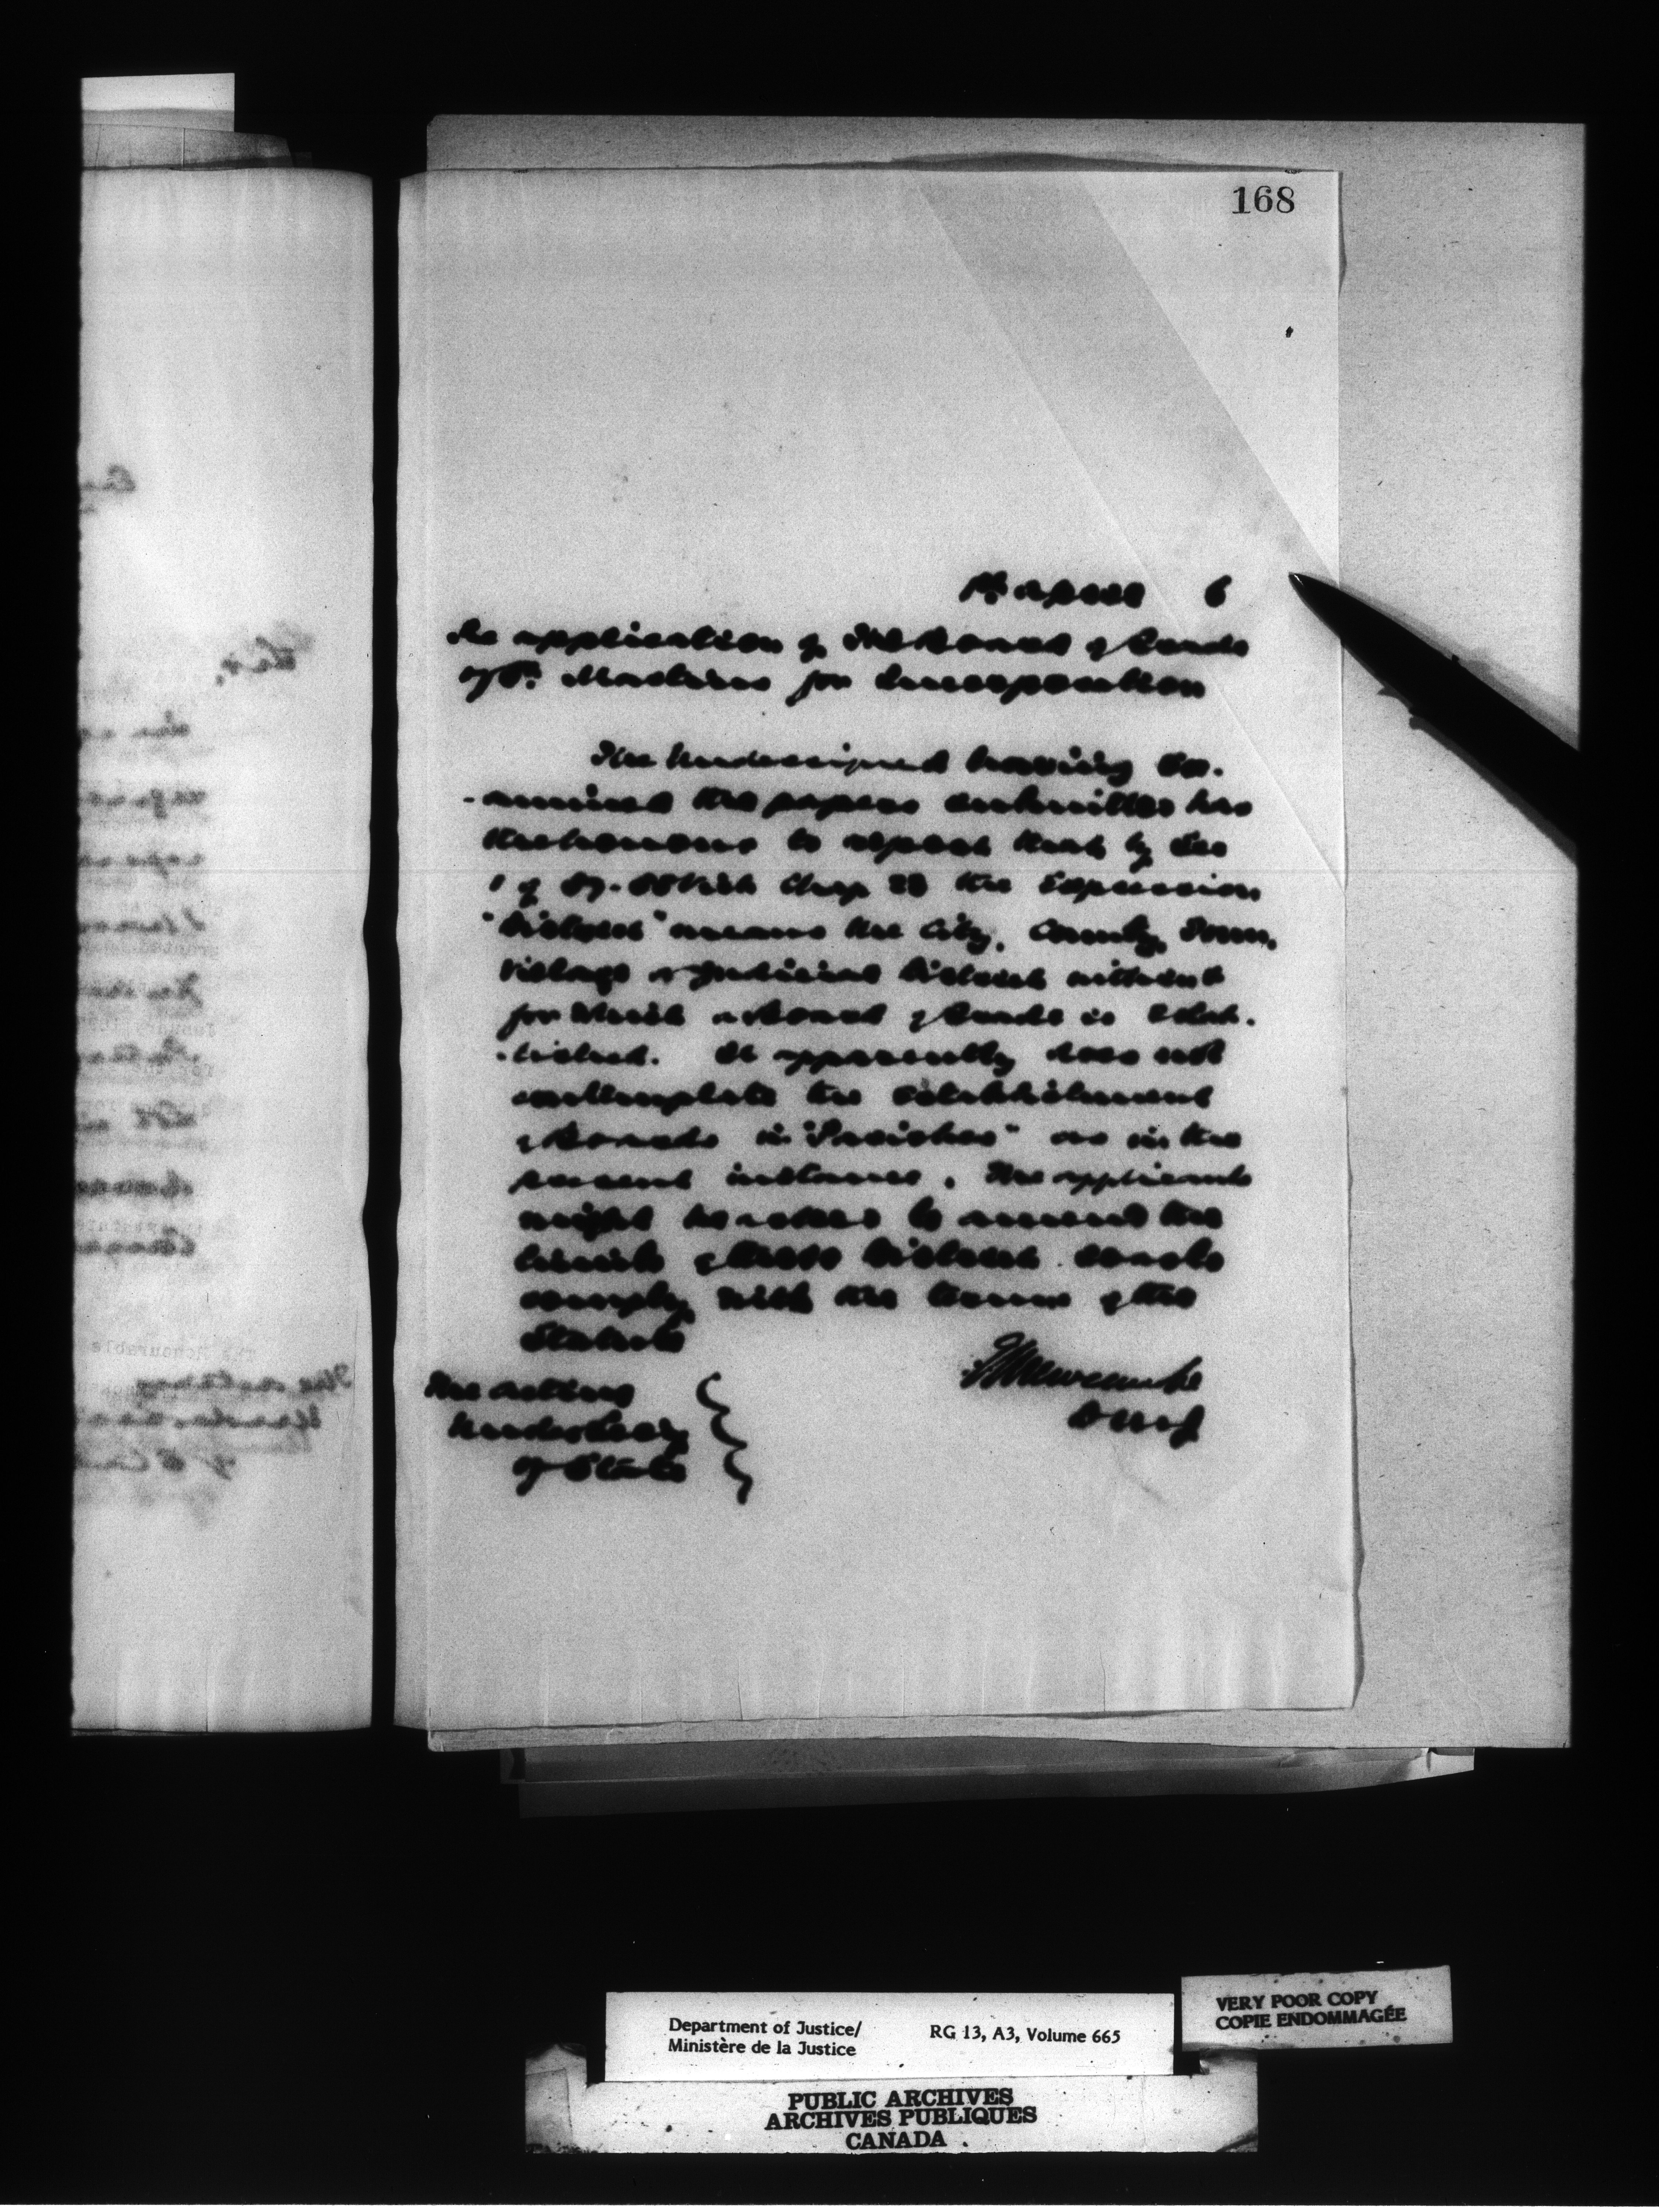 168
April 6
Re application of The Board of Trade
of St. Martins for Incorporation
The Undersigned having Ex-
-amined the papers submitted has
the honour to report that by Sec
1 of 57-58 Vict Chap 23 the Expression
"District" means the City, County, Town,
Village or Judicial District within &
for Which a Board of Trade is Estab-
-lished. It apparently does not
contemplate the Establishment
of Boards in "Parishes" as in the
present instance. The applicants
might be asked to amend the
limits of their District so as to
comply with the terms of the
Statute
E L Newcombe
D M of J
The Acting
Under Secy
of State
Department of Justice/
Ministère de la Justice
RG 13, A3, Volume 665
VERY POOR COPY
COPIE ENDOMMAGÉE
PUBLIC ARCHIVES
ARCHIVES PUBLIQUES
CANADA